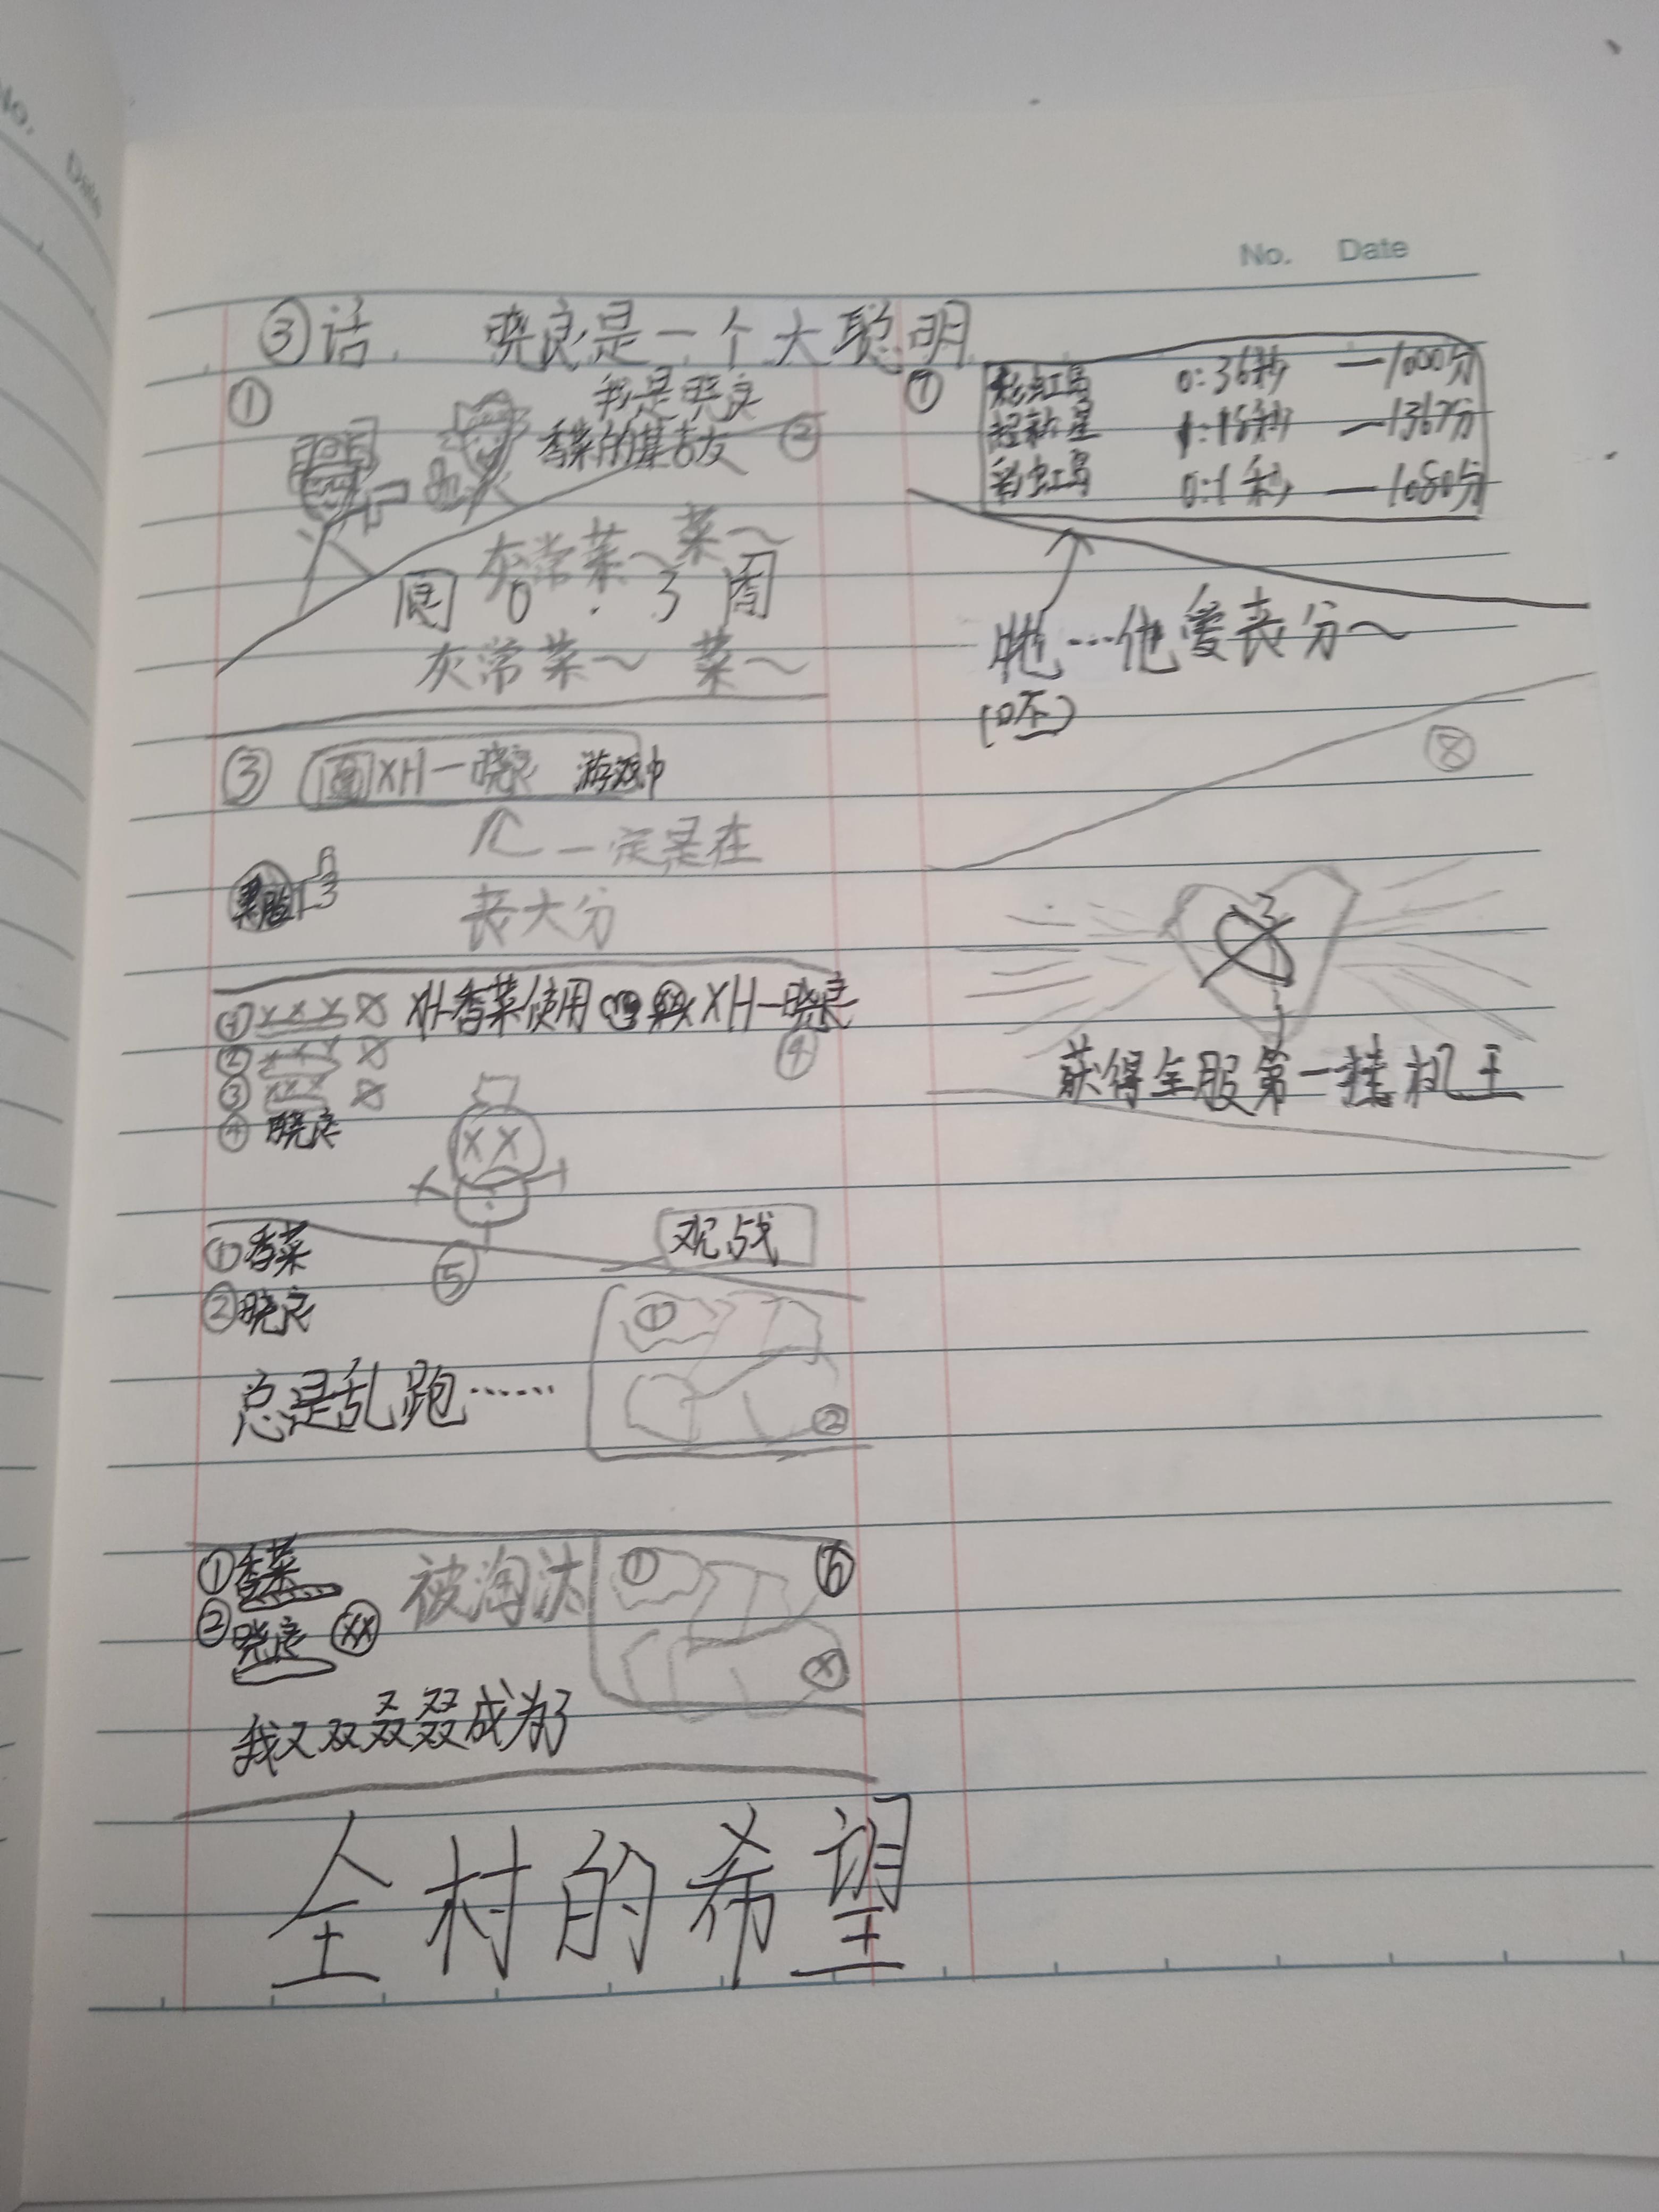 No. Date
③话 晓良是一个大聪明
①
我是晓良
香菜的基友
②
灰常菜～菜～
圈 0.3 圈
灰常菜～ 菜～
③ XH一晓良 游戏中
一定是在
丧大分
黑脸
①XXX
②XXX
③XXX
④晓良
XH香菜使用
XH一晓良
④
①香菜
②晓良
⑤
观战
①
②
总是乱跑……
①香菜
②晓良
被淘汰
①
⑥
我又双叒叕成为了
全村的希望
⑦
彩虹岛 0:36秒 —1000分
超新星 1:18秒 —1367分
彩虹岛 0:1秒 —1080分
他…他爱丧分～
(呸)
⑧
获得全服第一挂机王
No.
Date